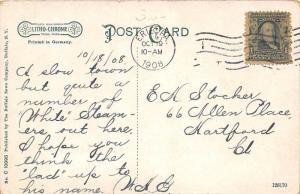 LITHO-CHROME
POST CARD
Printed in Germany.
OCT 19
10-AM
1908
10/18/08.
A slow town
but quite a
number of
"White" Steam-
ers out here.
I hope you
think the
"lad" up to
his name.
E H Stocker
66 Allen Place
Hartford
Ct
No. C 10993 Published by The Buffalo News Company, Buffalo, N.Y.